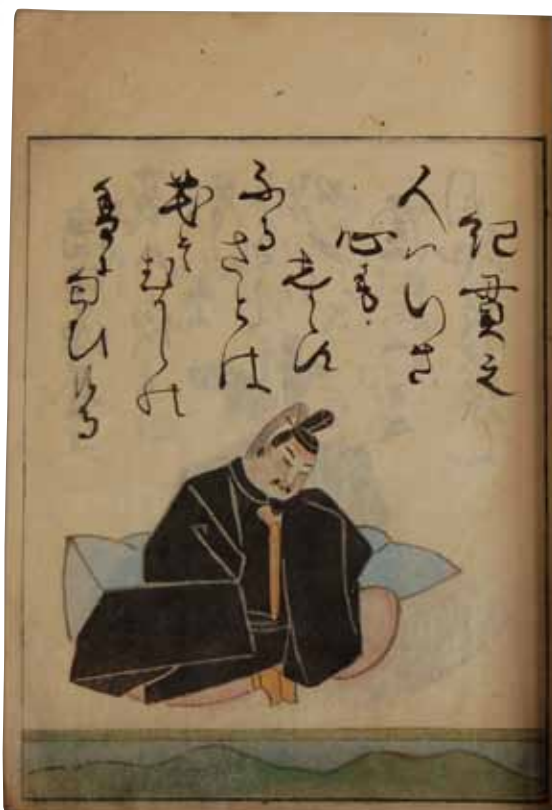 紀貫之
人ハいさ
心も
しらす
ふる
さとは
花そ
むかしの
香に匂ひける